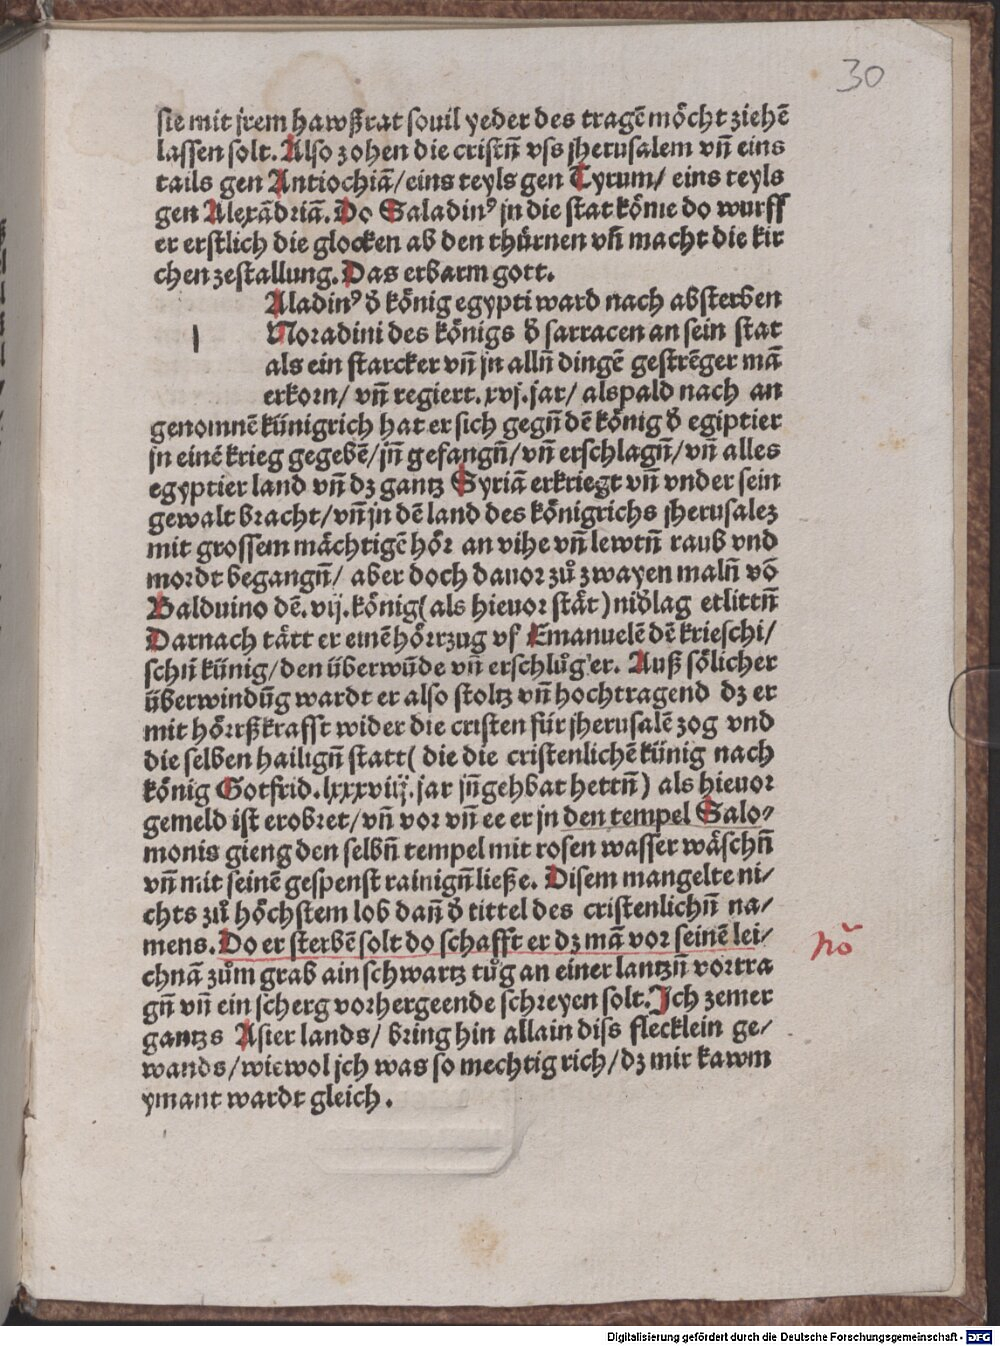 30
sie mit jrem hawßrat souil yeder des tragē möcht ziehē
lassen solt. Also zohen die cristn̄ vss jherusalem vn̄ eins
tails gen Antiochiā/ eins teyls gen Tyrum/ eins teyls
gen Alexādriā. Do Saladinꝰ jn die stat köme do wurff
er erstlich die glocken ab den thürnen vn̄ macht die kir
chen zestallung. Das erbarm gott.
Aladinꝰ d̄ könig egypti ward nach absterben
Noradini des königs d̄ sarracen an sein stat
als ein starcker vn̄ jn alln̄ dingē gestrēger mā
erkorn/ vn̄ regiert. xvj. jar/ alspald nach an
genomnē künigrich hat er sich gegn̄ dē könig d̄ egiptier
jn einē krieg gegebē/ jn̄ gefangn̄/ vn̄ erschlagn̄/ vn̄ alles
egyptier land vn̄ dz gantz Syriā erkriegt vn̄ vnder sein
gewalt bracht/ vn̄ jn dē land des königrichs jherusalez
mit grossem mächtigē hör an vihe vn̄ lewtn̄ raub vnd
mordt begangn̄/ aber doch dauor zů zwayen maln̄ vō
Balduino dē. vij. könig( als hieuor stät) nid̄lag etlittn̄
Darnach tätt er einē hörrzug vf Emanuelē dē krieschi/
schn̄ künig/ den überwūde vn̄ erschlůg er. Auß sölicher
überwindūg wardt er also stoltz vn̄ hochtragend dz er
mit hörrßkrafft wider die cristen für jherusalē zog vnd
die selben hailign̄ statt( die die cristenlichē künig nach
könig Gotfrid. lxxxviij. jar jn̄gehbat hettn̄) als hieuor
gemeld ist erobret/ vn̄ vor vn̄ ee er jn den tempel Salo⸗
monis gieng den selbn̄ tempel mit rosen wasser wäschn̄
vn̄ mit seinē gespenst rainign̄ ließe. Disem mangelte ni/
chts zů höchstem lob dan̄ d̄ tittel des cristenlichn̄ na/
mens. Do er sterbē solt do schafft er dz mā vor seinē lei/
nō
chnā zům grab ain schwartz tůg an einer lantzn̄ vortra
gn̄ vn̄ ein scherg vorhergeende schreyen solt. Ich zemer
gantzs Asier lands/ bring hin allain diss flecklein ge/
wands/ wiewol jch was so mechtig rich/ dz mir kawm
ymant wardt gleich.
Digitalisierung gefördert durch die Deutsche Forschungsgemeinschaft - DFG